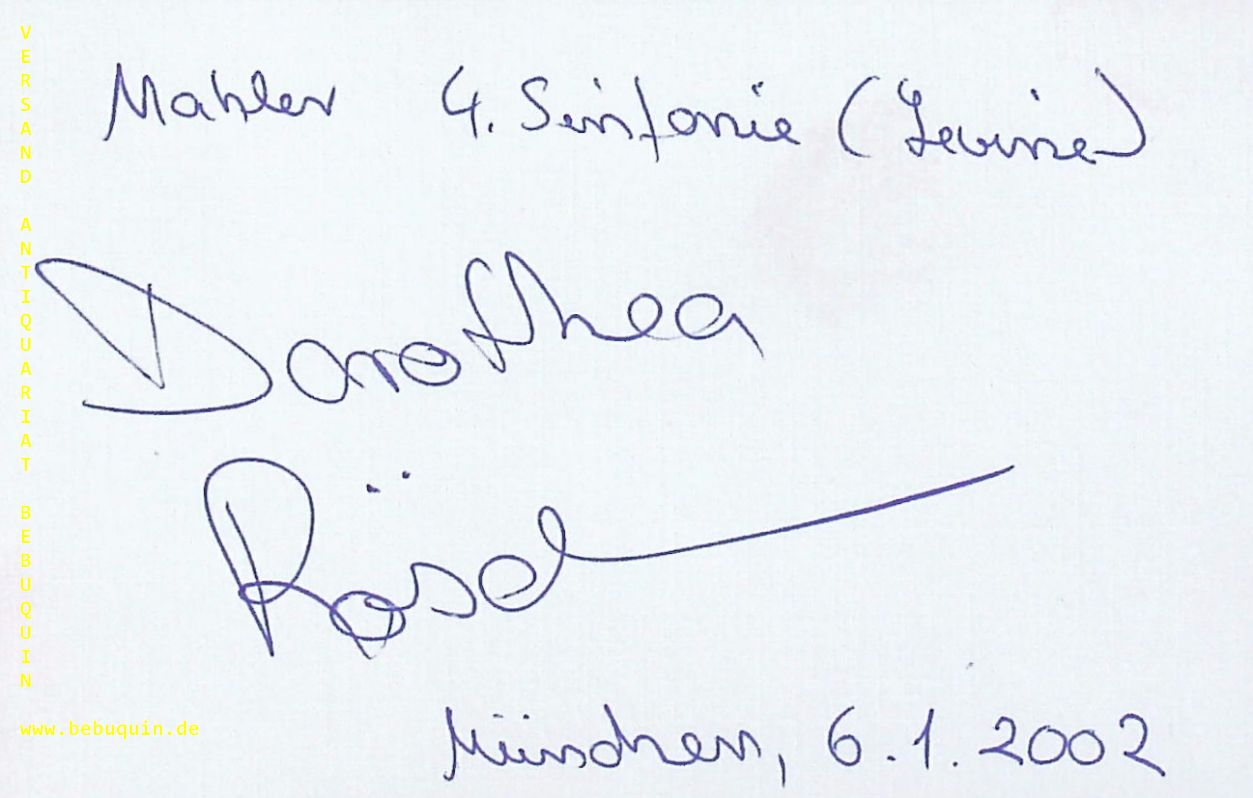 Mahler 4. Sinfonie (Levine)
Dorothea
Röschmann
München, 6.1.2002
VERSAND ANTIQUARIAT BEBUQUIN
www.bebuquin.de